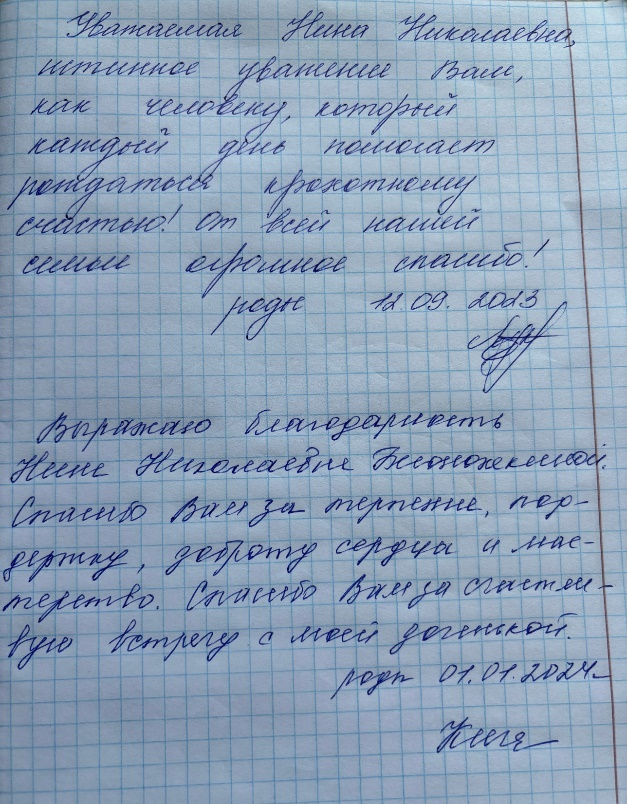 Уважаемая Нина Николаевна,
истинное уважение Вам,
как человеку, который
каждый день помогает
рождаться крохотному
счастью! От всей нашей
семьи огромное спасибо!
роды 12.09.2023
Выражаю благодарность
Нине Николаевне
Спасибо Вам за терпение, под-
держку, доброту сердца и мас-
терство. Спасибо Вам за счастли-
вую встречу с моей доченькой.
роды 01.01.2024